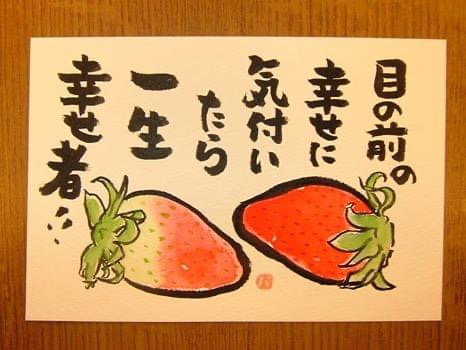 目の前の
幸せに
気付い
たら
一生
幸せ者